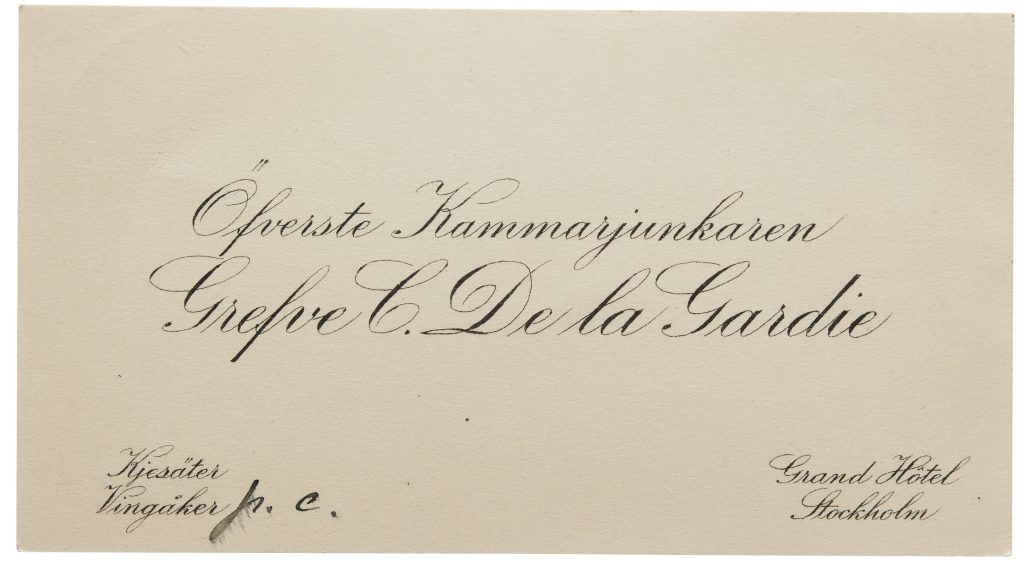 Öfverste Kammarjunkaren
Grefve C. De la Gardie
Kjesäter
Vingåker p. c.
Grand Hôtel
Stockholm